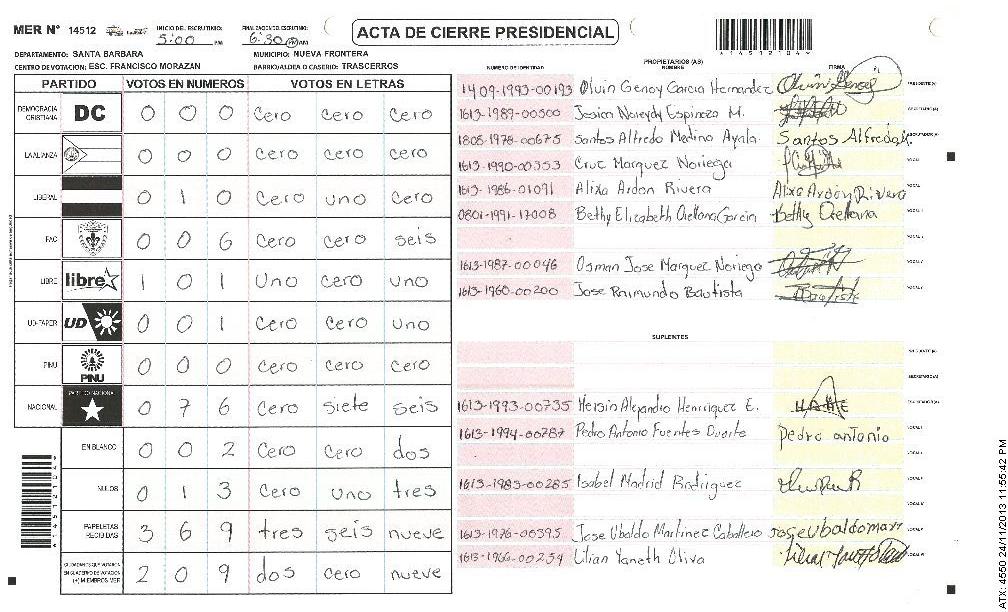 MER Nº 14512
INICIO DEL ESCRUTINIO: 5:00 PM
FINALIZACION DEL ESCRUTINIO: 6:30 PM
ACTA DE CIERRE PRESIDENCIAL
A14512104
DEPARTAMENTO: SANTA BARBARA
MUNICIPIO: NUEVA FRONTERA
CENTRO DE VOTACION: ESC. FRANCISCO MORAZAN
BARRIO/ALDEA O CASERIO: TRASCERROS
PARTIDO VOTOS EN NUMEROS VOTOS EN LETRAS
DEMOCRACIA CRISTIANA DC 0 0 0 cero cero cero
LA ALIANZA 0 0 0 cero cero cero
LIBERAL 0 1 0 cero uno cero
PAC 0 0 6 cero cero seis
LIBRE libre 1 0 1 uno cero uno
UD-FAPER UD 0 0 1 cero cero uno
PINU PINU 0 0 0 cero cero cero
NACIONAL PARTIDO NACIONAL 0 7 6 cero siete seis
EN BLANCO 0 0 2 cero cero dos
NULOS 0 1 3 cero uno tres
PAPELETAS RECIBIDAS 3 6 9 tres seis nueve
CIUDADANOS QUE VOTARON EN CUADERNO DE VOTACION (+) MIEMBROS MER 2 0 9 dos cero nueve
PROPIETARIOS (AS)
NUMERO DE IDENTIDAD NOMBRE FIRMA
1409-1993-00193 Olvin Genoy Garcia Hernandez
1613-1987-00500 Jesica Noreydy Espinoza M.
1808-1978-00675 Santos Alfredo Medina Ayala Santos Alfredo
1613-1990-00353 Cruz Marquez Noriega
1613-1986-01091 Alixa Ardon Rivera Alixa Ardón Rivera
0801-1991-17008 Bethy Elizabeth Orellana Garcia Bethy Orellana
1613-1987-00046 Osman Jose Marquez Noriega
1613-1960-00200 Jose Raimundo Bautista
SUPLENTES
1613-1993-00735 Hersin Alejandro Henrriquez E.
1613-1994-00787 Pedro Antonio Fuentes Duarte Pedro antonio
1613-1983-00285 Isabel Madrid Rodriguez
1613-1976-00395 Jose Ubaldo Martinez Caballero Jose Ubaldo Mart
1613-1966-00259 Lilian Yaneth Oliva
ATX: 4550 24/11/2013 11:55:42 PM